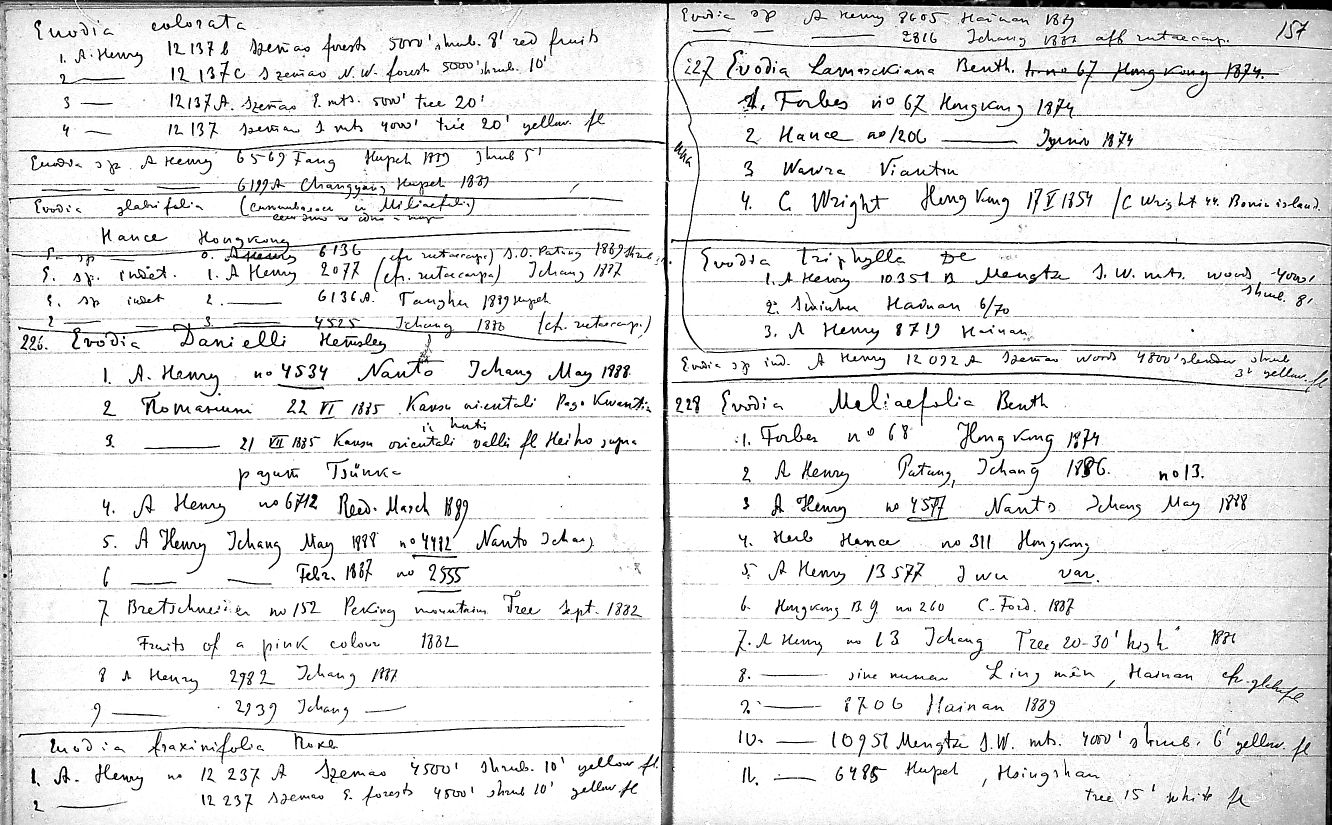 Evodia colorata
1. A. Henry 12137B Szemao forests 5000' shrub. 8' red fruits
2 — 12137C Szemao N.W. forests 5000' shrub. 10'
3 — 12137A. Szemao E. mts. 5000' tree 20'
4 — 12137 Szemao S mts 4000' tree 20' yellow. fl
Evodia sp A Henry 6569 Fang Hupeh 1889 shrub 5'
— — — 6199A Changyang Hupeh 1889
Evodia glabrifolia ( и Meliaefolia)
Hance Hongkong
E. sp — 0. A Henry 6136 (cfr rutaecarpa) S.O. Patung 1889 shrub
E. sp. indet. 1. A Henry 2077 (cfr. rutaecarpa) Ichang 1887
E. sp indet 2. — 6136A. Hupeh 1889
2 — — 3. — 4525 Ichang 1888 (cf. rutaecarp.)
226. Evodia Danielli Hemsley
1. A. Henry no 4534 Nanto Ichang May 1888
2 22 VI 1885 Kansu orientali Pago
3. — 21 VII 1885 Kansu orientali valli fl Heiho supra
pagum
4. A Henry no 6712 Reed. March 1889
5. A Henry Ichang May 1888 no 4482 Nanto Ichang
6 — — Febr. 1887 no 2555
7 Bretschneider no 152 Peking mountains Tree Sept. 1882
Fruits of a pink colour 1882
8 A Henry 2982 Ichang 1887
9 — 2939 Ichang —
Evodia fraxinifolia Roxb
1. A. Henry no 12237A Szemao 4500' shrub. 10' yellow fl
2 — 12237 Szemao E. forests 4500' shrub 10' yellow. fl
Evodia sp A Henry 8605 Hainan 1889
— — — 2816 Ichang 1887 aff rutaecarp. 157
227 Evodia Lamarckiana Benth. 1. no 67 Hong Kong 1874.
1. Forbes no 67 Hongkong 1874
2 Hance no 1206 — 1874
3 Wawra
4. C. Wright Hong Kong 17 V 1854 / C Wright 44. Bonin island.
Evodia triphylla DC
1. A Henry 10351 B Mengtz S.W. mts. woods 4000'
shrub. 8'
2. Swinhoe Hainan 6/70
3. A Henry 8719 Hainan
Evodia sp ind. A Henry 12092A Szemao woods 4800' slender shrub
3' yellow. fl
228 Evodia Meliaefolia Benth
1. Forbes no 68 Hongkong 1874
2 A Henry Patung, Ichang 1886. no 13.
3 A Henry no 4577 Nanto Ichang May 1888
4. Herb Hance no 311 Hongkong
5. A Henry 13577 var.
6. Hongkong B g no 260 C. Ford. 1887
7. A Henry no 13 Ichang Tree 20-30' high
8. — sine numero Ling mên, Hainan
9. — 8706 Hainan 1889
10. — 10951 Mengtz S.W. mts. 4000' shrub. 6' yellow. fl
11. — 6485 Hupeh, Hsingshan
tree 15' white fl